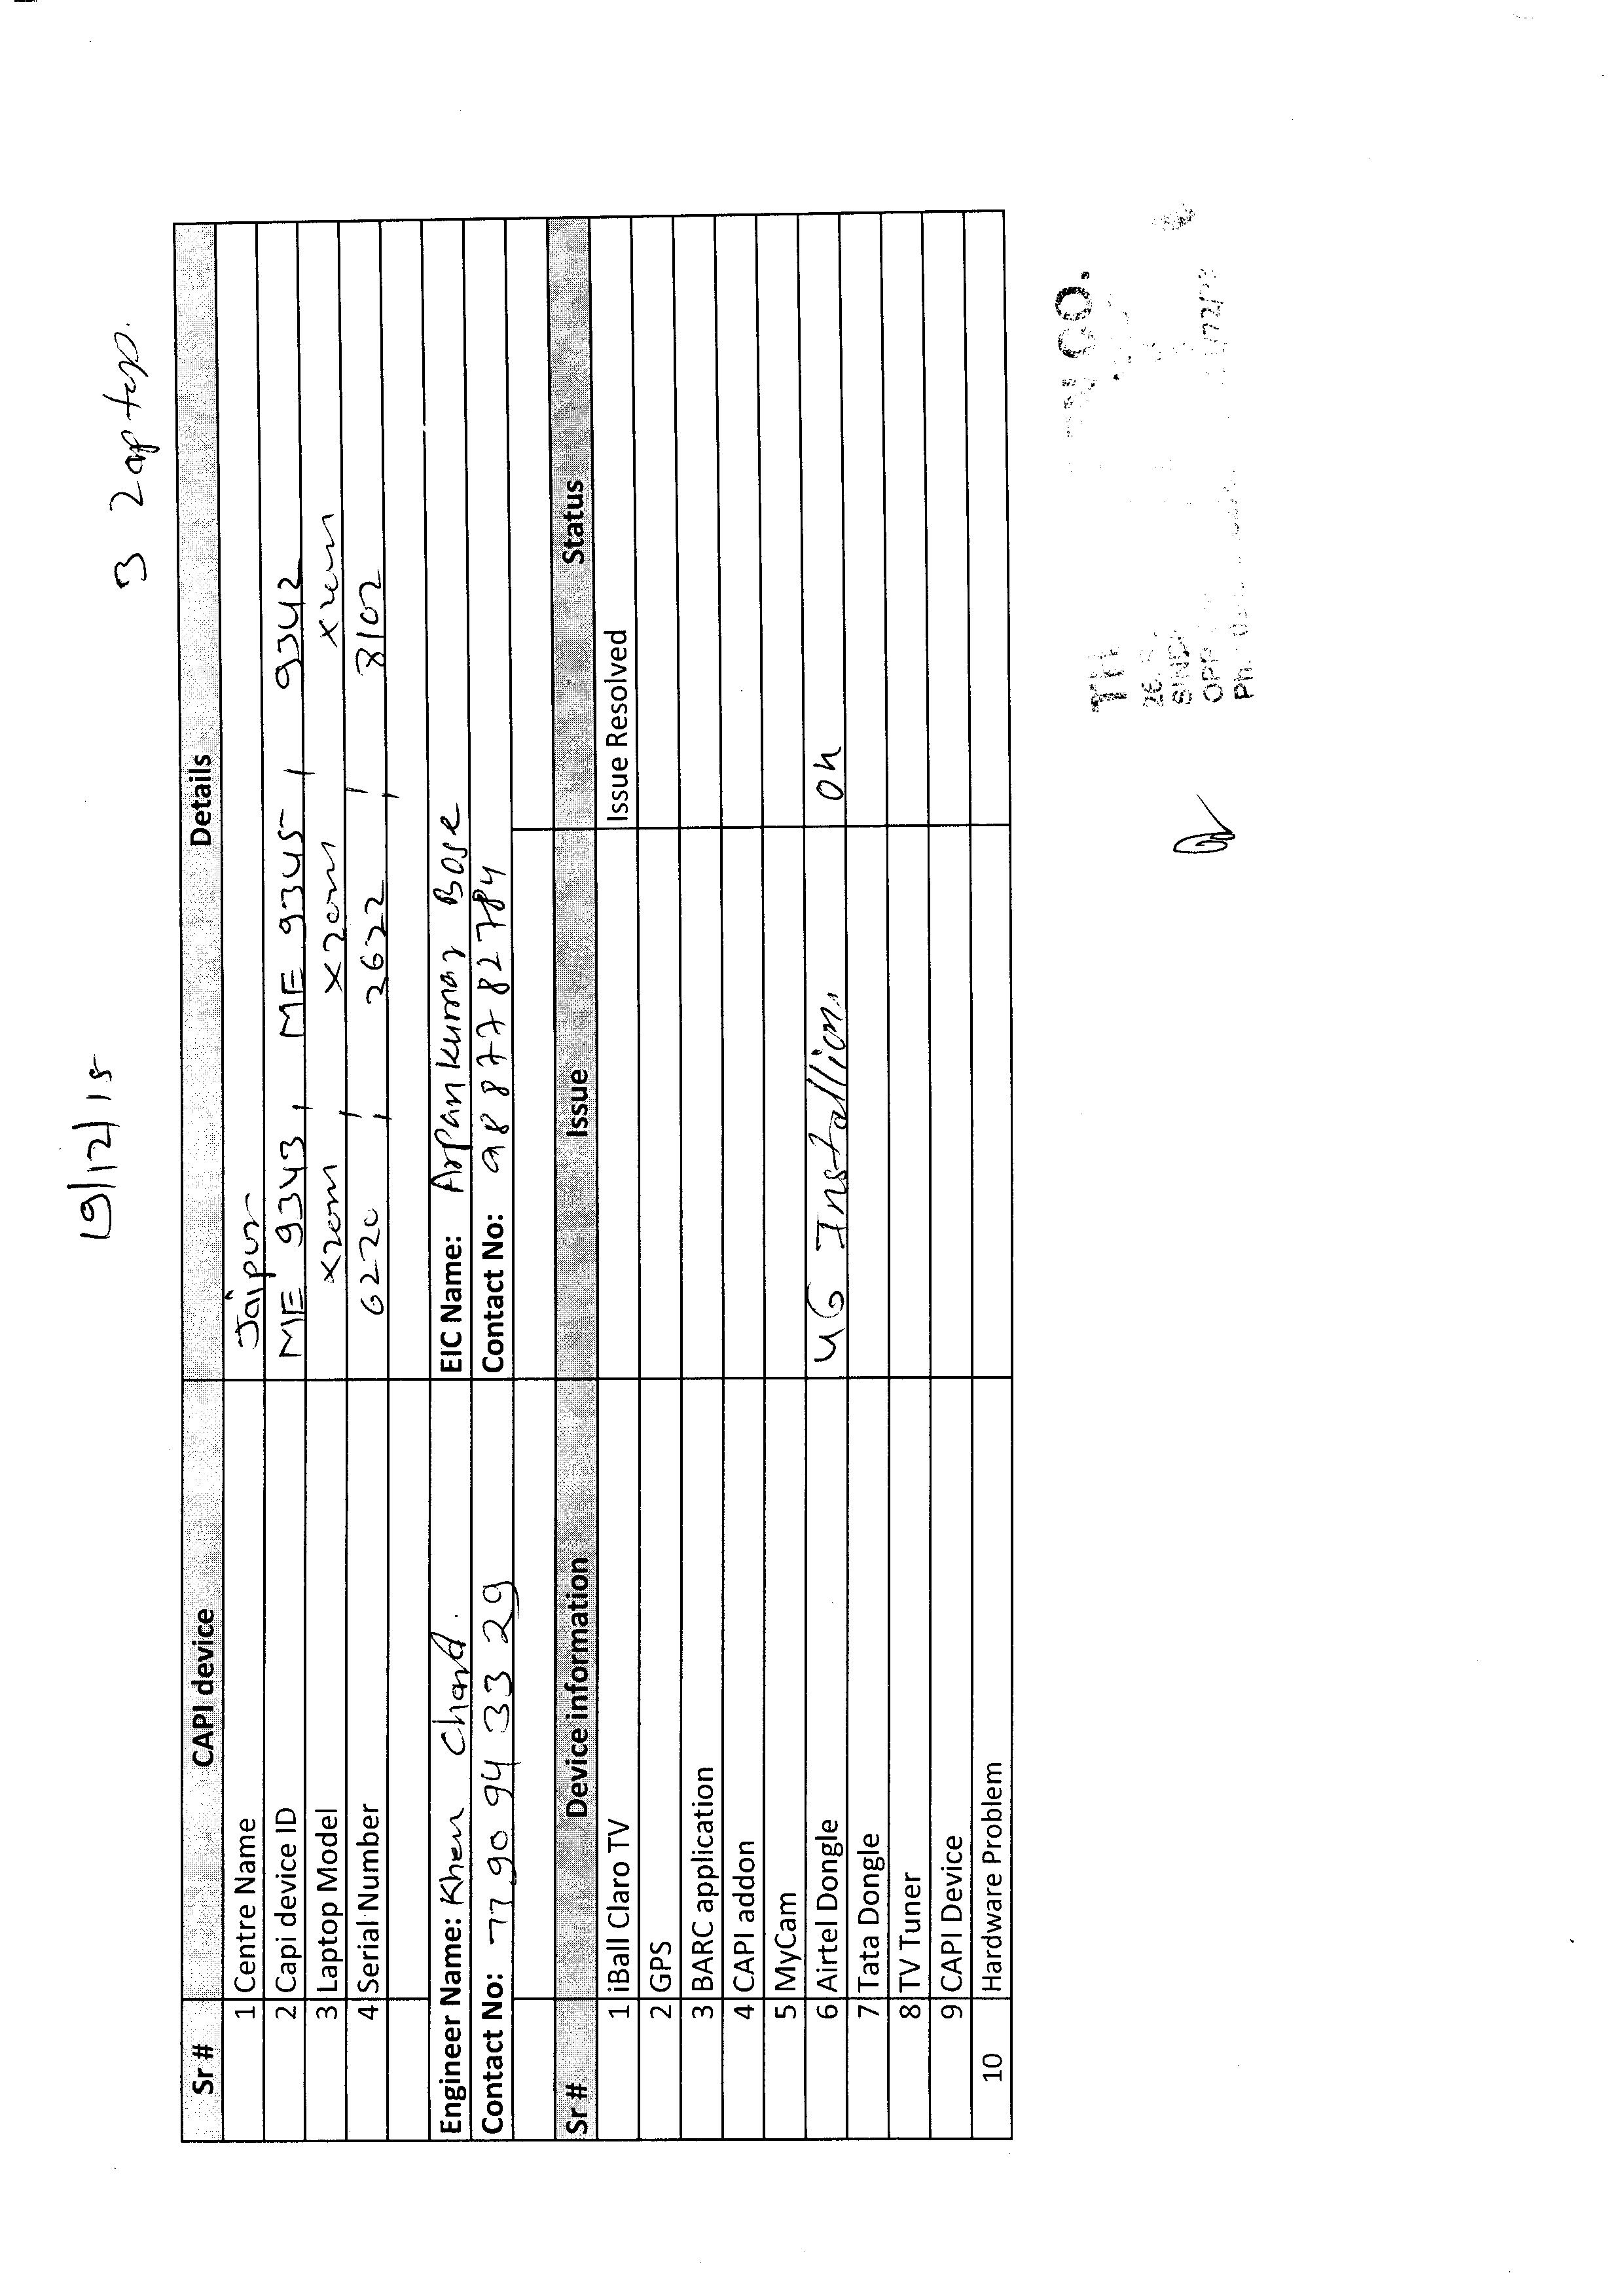 19/12/15
3 Laptop.
Sr # CAPI device Details
1 Centre Name Jaipur
2 Capi device ID ME 9343, ME 9345, 9342
3 Laptop Model x201m, x201m
4 Serial Number 6220, 2622, 8102
Engineer Name: Khem Chand. EIC Name: Arpan kumar Bose
Contact No: 7790943329 Contact No: 9887782784
Sr # Device information Issue Status
1 iBall Claro TV Issue Resolved
2 GPS
3 BARC application
4 CAPI addon
5 MyCam
6 Airtel Dongle 4G Installion ok
7 Tata Dongle
8 TV Tuner
9 CAPI Device
10 Hardware Problem
CO.
OPP
Ph.